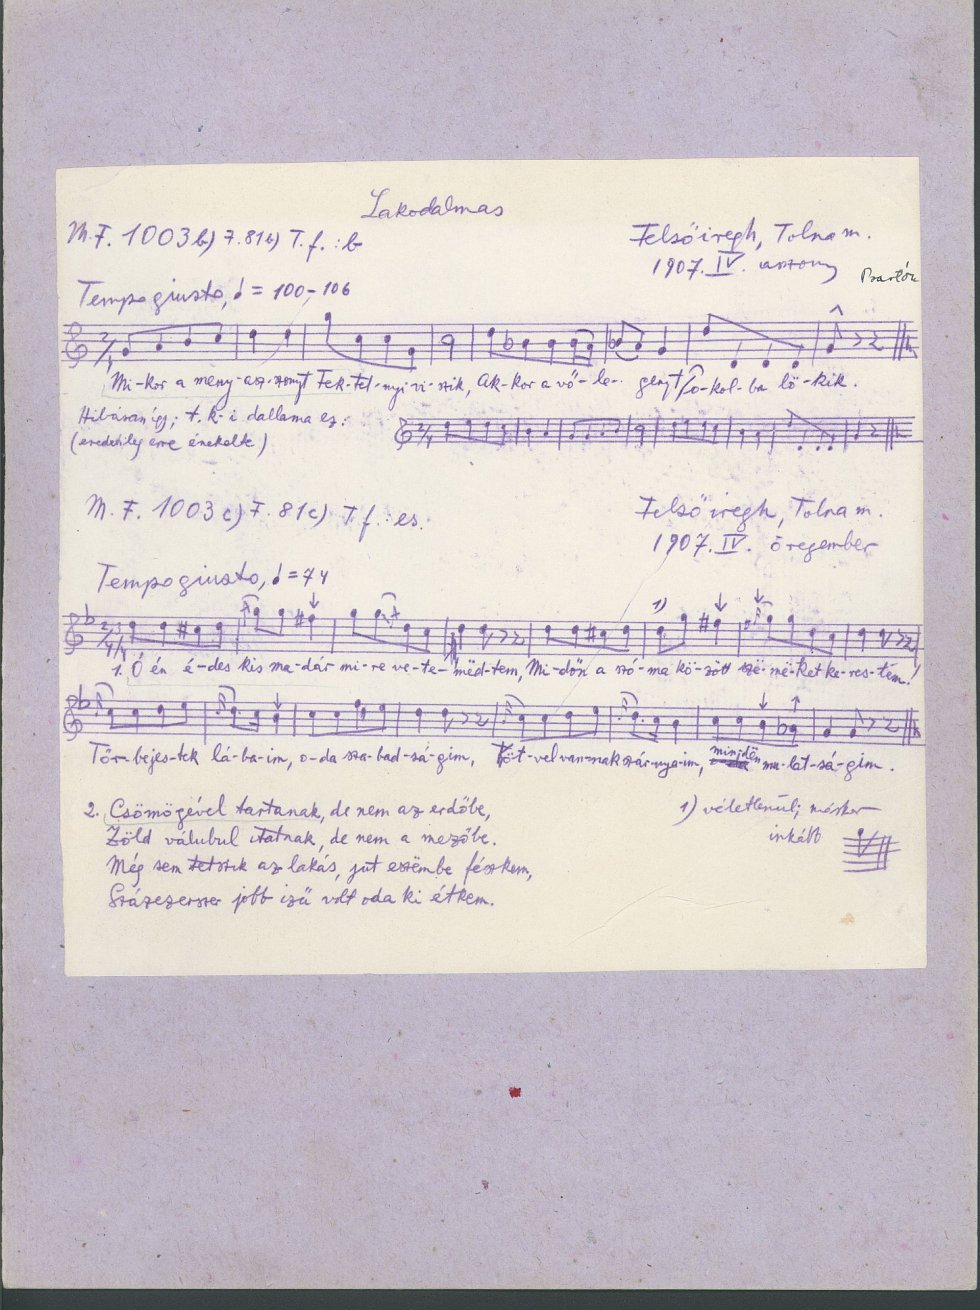 Lakodalmas
M.F. 1003 b) F. 81 b) T. f. : b
Felsőiregh, Tolna m.
1907. IV. asszony
Bartók
Tempo giusto, ♩ = 100-106
Mi-kor a meny-asz-szonyt Fek-tet-nyi vi-szik, Ak-kor a vő-le- gényt Po-kol-ba lö-kik.
Hibásan így; t. k. i dallama ez:
(eredetileg erre énekelte)
M. F. 1003 c) F. 81 c) T. f. : es.
Felsőiregh, Tolna m.
1907. IV. öregember
Tempo giusto, ♩ = 74
1)
1. Ó én é-des kis ma-dár mi-re ve-te-mëd-tem, Mi-dőn a szó-ma kö-zött szë-më-ket ke-res-tem!
Tőr-be jes-tek lá-ba-im, o-da sza-bad-sá-gim, Köt-vel van-nak szár-nya-im, mindën mu-lat-sá-gim.
2. Csömögével tartanak, de nem az erdőbe,
Zöld válubul itatnak, de nem a mezőbe.
Még sem tetszik az lakás, jut eszëmbe fészkem,
Százezerszer jobb izü volt oda ki étkem.
1) véletlenül; máskor
inkább